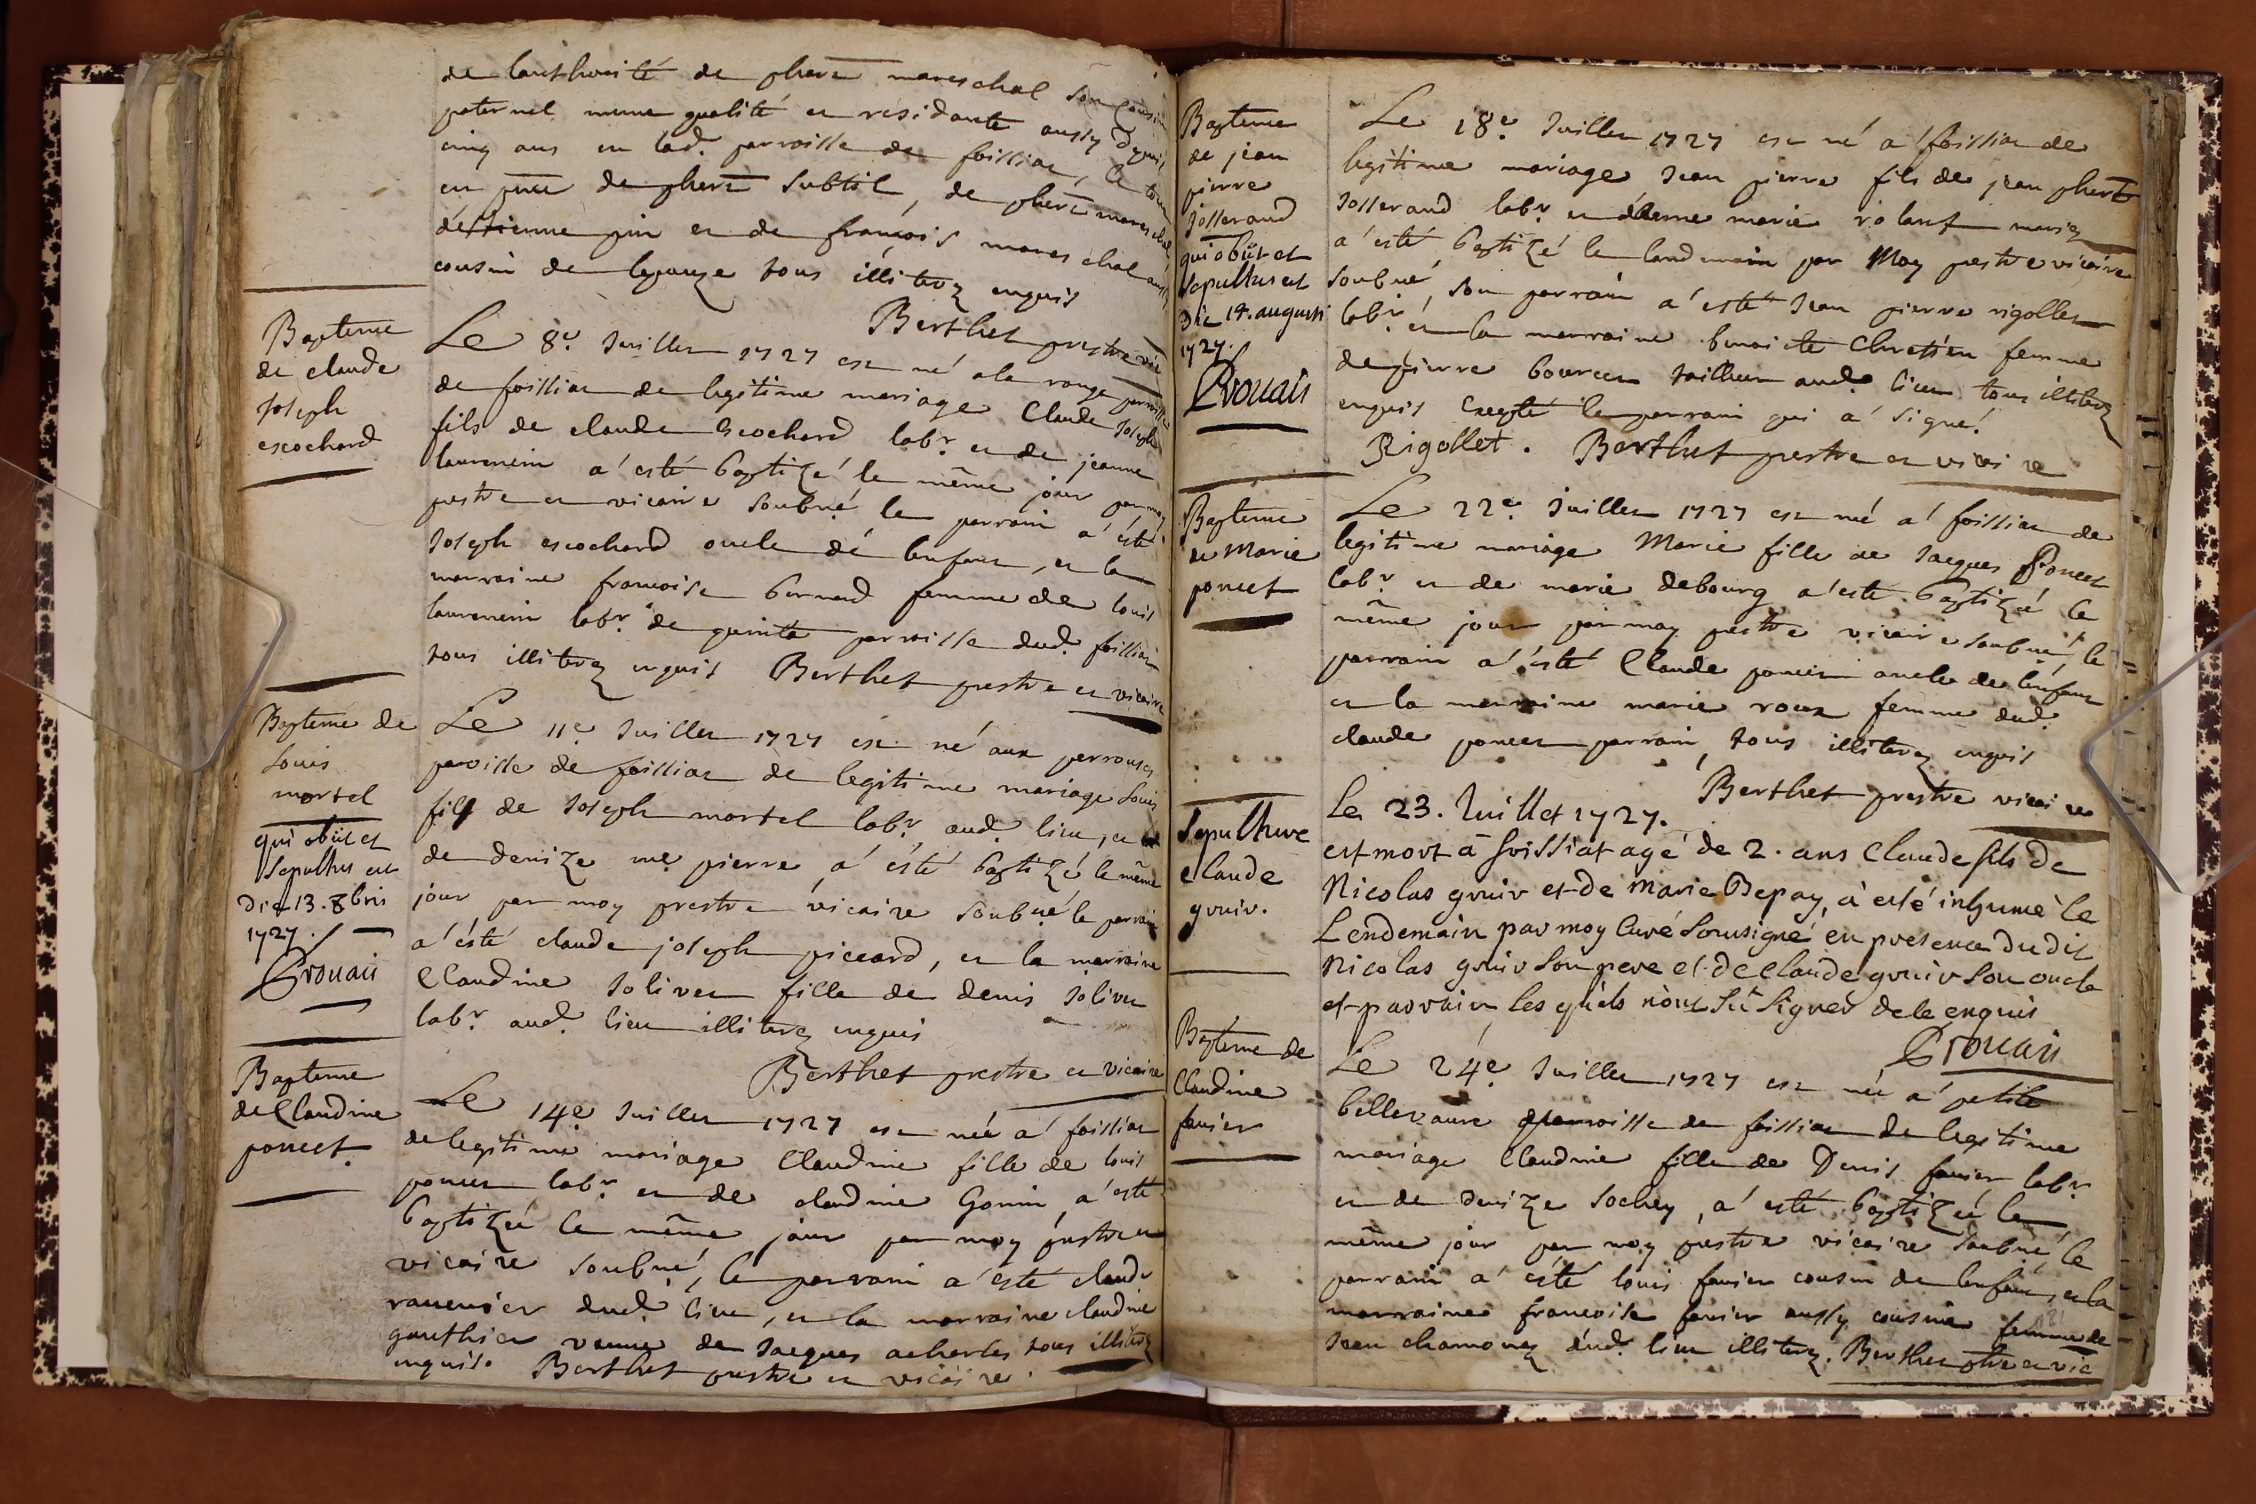 de lauthorité de phert mareschal son cousin
paternel meme qualité et residante aussy depuis
cinq ans en lad. parroisse de foissiat, le tout
en pnce de phert subtil, de phert mareschal
détienne pin et de françois mareschal aussy
cousin de lepouze tous illiterez enquis
Berthet prestre vic
Bapteme
de claude
Joseph
escochard
Le 8e. Juillet 1727 est né a la rouge parroisse
de foissiat de legitime mariage Claude Joseph
fils de claude Escochard labr. et de jeanne
laurencin a' esté baptizé le même jour par moy
prestre et vicaire soubné le parrain a' ésté
Joseph escochard oncle dé lenfant, et la
marraine francoise bernard femme de louis
laurencin labr. de quinte parroisse dud. foissiat
tous illiterez enquis Berthet prestre et vicaire
Bapteme de
Louis
mortel
qui obiit et
Sepultus est
die 13. 8bris
1727.
Drouaii
Le 11e Juillet 1727 est né aux perrouses
paroisse de foissiat de legitime mariage Louis
fils de Joseph mortel labr. aud. lieu, et
de denize me pierre, a' ésté baptizé le même
jour par moy prestre vicaire soubné le parrain
a' ésté claude joseph piccard, et la marraine
Claudine Jolivet fille de denis Jolivet
labr. aud. lieu illiterez enquis
Berthet prestre et vicaire
Bapteme
de Claudine
poncet
Le 14e Juillet 1727 est née a' foissiat
de legitime mariage Claudine fille de louis
poncet labr. et de claudine Gonin, a' esté
baptizée le même jour par moy prestre et
vicaire soubné, le parrain a' ésté claude
dud. lieu, et la marraine claudine
gauthier veuve de Jacques tous illiterez
enquis. Berthet prestre et vicaire.
Bapteme
de jean
pierre
Josserand
qui obiit et
Sepultus est
Die 14. augusti
1727.
Drouaii
Le 18e. Juillet 1727 est né a' foissiat de
legitime mariage Jean pierre fils de jean phert
Josserand labr. et marie rolant mariez
a' esté baptizé le landemain par Moy prestre vicaire
soubné, son parrain a' esté Jean pierre rigollet
labr. et la marraine benoicte Chretien femme
de pierre bourcet tailleur aud. lieu tous illiterez
enquis Excepté le parrain qui a' signé.
Rigollet. Berthet prestre et vicaire
Bapteme
de Marie
poncet
Le 22e. Juillet 1727 est né a' foissiat de
legitime mariage Marie fille de Jacques Poncet
labr. et de marie debourg a' esté baptizée le
même jour par moy prestre vicaire soubné, le
parrain a' ésté Claude poncet oncle de lenfant
et la marraine marie roux femme dud.
claude poncet parrain, tous illiterez enquis
Berthet prestre vicaire
Sepulture
Claude
gruiv.
Le 23. Juillet 1727.
est mort a foissiat agé de 2. ans Claude fils de
Nicolas gruiv et de Marie Depay, à esté inhumé le
Lendemain par moy Curé Sousigné en presence dudit
Nicolas gruiv son pere et de Claude gruiv son oncle
et parrain les quels n'ont Sçu Signer de le enquis
Drouaii
Bapteme de
Claudine
favier
Le 24e. Juillet 1727 est née a' petite
bellevaure parroisse de foissiat de legitime
mariage Claudine fille de Denis favier labr.
et de denize Sochey, a' esté baptizée le
même jour par moy prestre vicaire soubné, le
parrain a' ésté louis favier cousin de lenfant, et la
marraine francoise favier aussy cousine femme de
Jean chamonez dud. lieu illiterez. Berthet ptre et vic